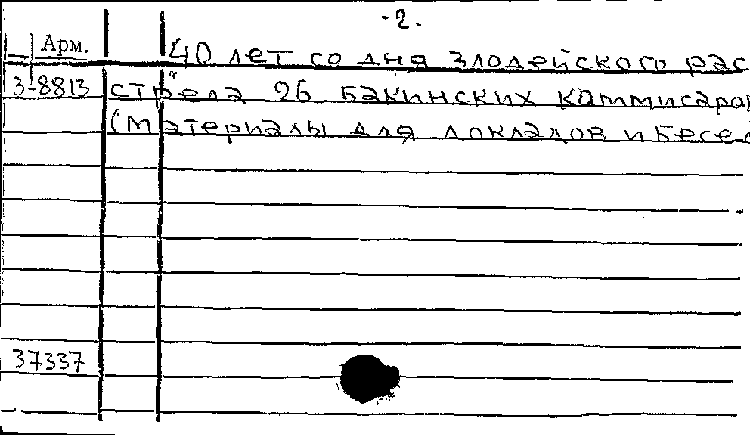 -2.
Арм.
40 лет со дня злодейского рас
3-8813 стрела 26 бакинских коммисаров
(материалы для докладов и бесед
37337